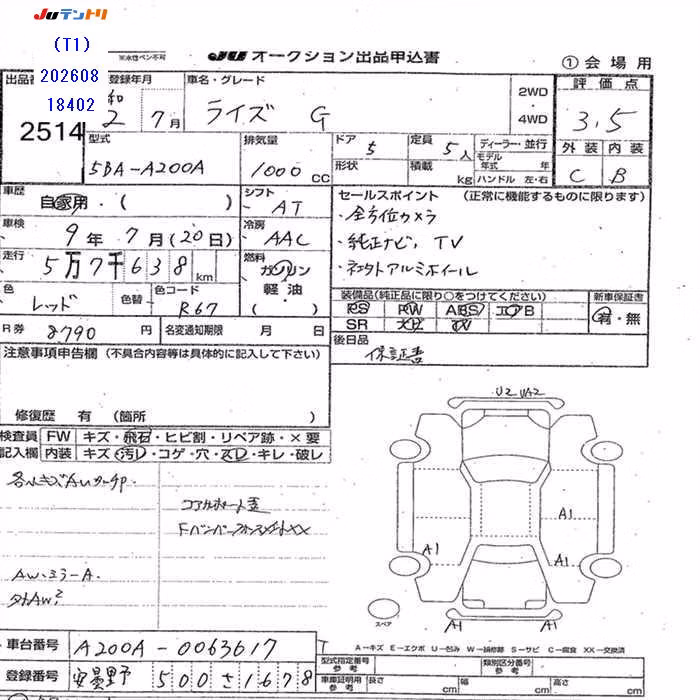 JUテントリ
(T1)
202608
18402
※水性ペン不可
JU オークション出品申込書
①会場用
登録年月
車名・グレード
2WD・4WD
評価点
2514
和 2 7月
ライズ G
3.5
型式
排気量
ドア
定員
ディーラー・並行
外装
内装
5BA-A200A
1000 CC
5
5人
モデル年式 年
形状
積載 kg
ハンドル 左・右
C
B
車歴
自家用・( )
シフト
AT
セールスポイント (正常に機能するものに限ります)
・全方位カメラ
車検
9年7月(20日)
冷房
AAC
・純正ナビ、TV
走行
5万7千638km
燃料
ガソリン
軽・油
( )
色
レッド
色替
色コード
R67
装備品(純正品に限り○をつけてください)
新車保証書
PS PW ABS エアB
有・無
SR ナビ TV
R券 8790円
名変通知期限 月 日
後日品
保証書
注意事項申告欄 (不具合内容等は具体的に記入して下さい)
修復歴 有 (箇所 )
検査員
FW
キズ・飛石・ヒビ割・リペア跡・×要
記入欄
内装
キズ・汚レ・コゲ・穴・スレ・キレ・破レ
U2
A1
A1
A1
A1
A1
スペア
A-キズ E-エクボ U-凹み W-補修跡 S-サビ C-腐食 XX-交換済
車台番号
A200A-0063617
型式指定番号 参考
類別区分番号 参考
登録番号
安曇野 500 さ 1678
車庫証明用 参考
長さ cm
幅 cm
高さ cm